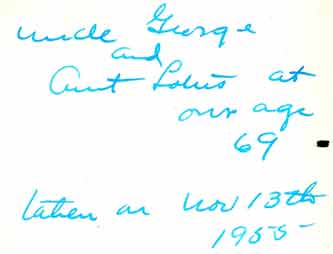 uncle George
and
Aunt Lotus at
our age
69
taken on Nov 13th
1955